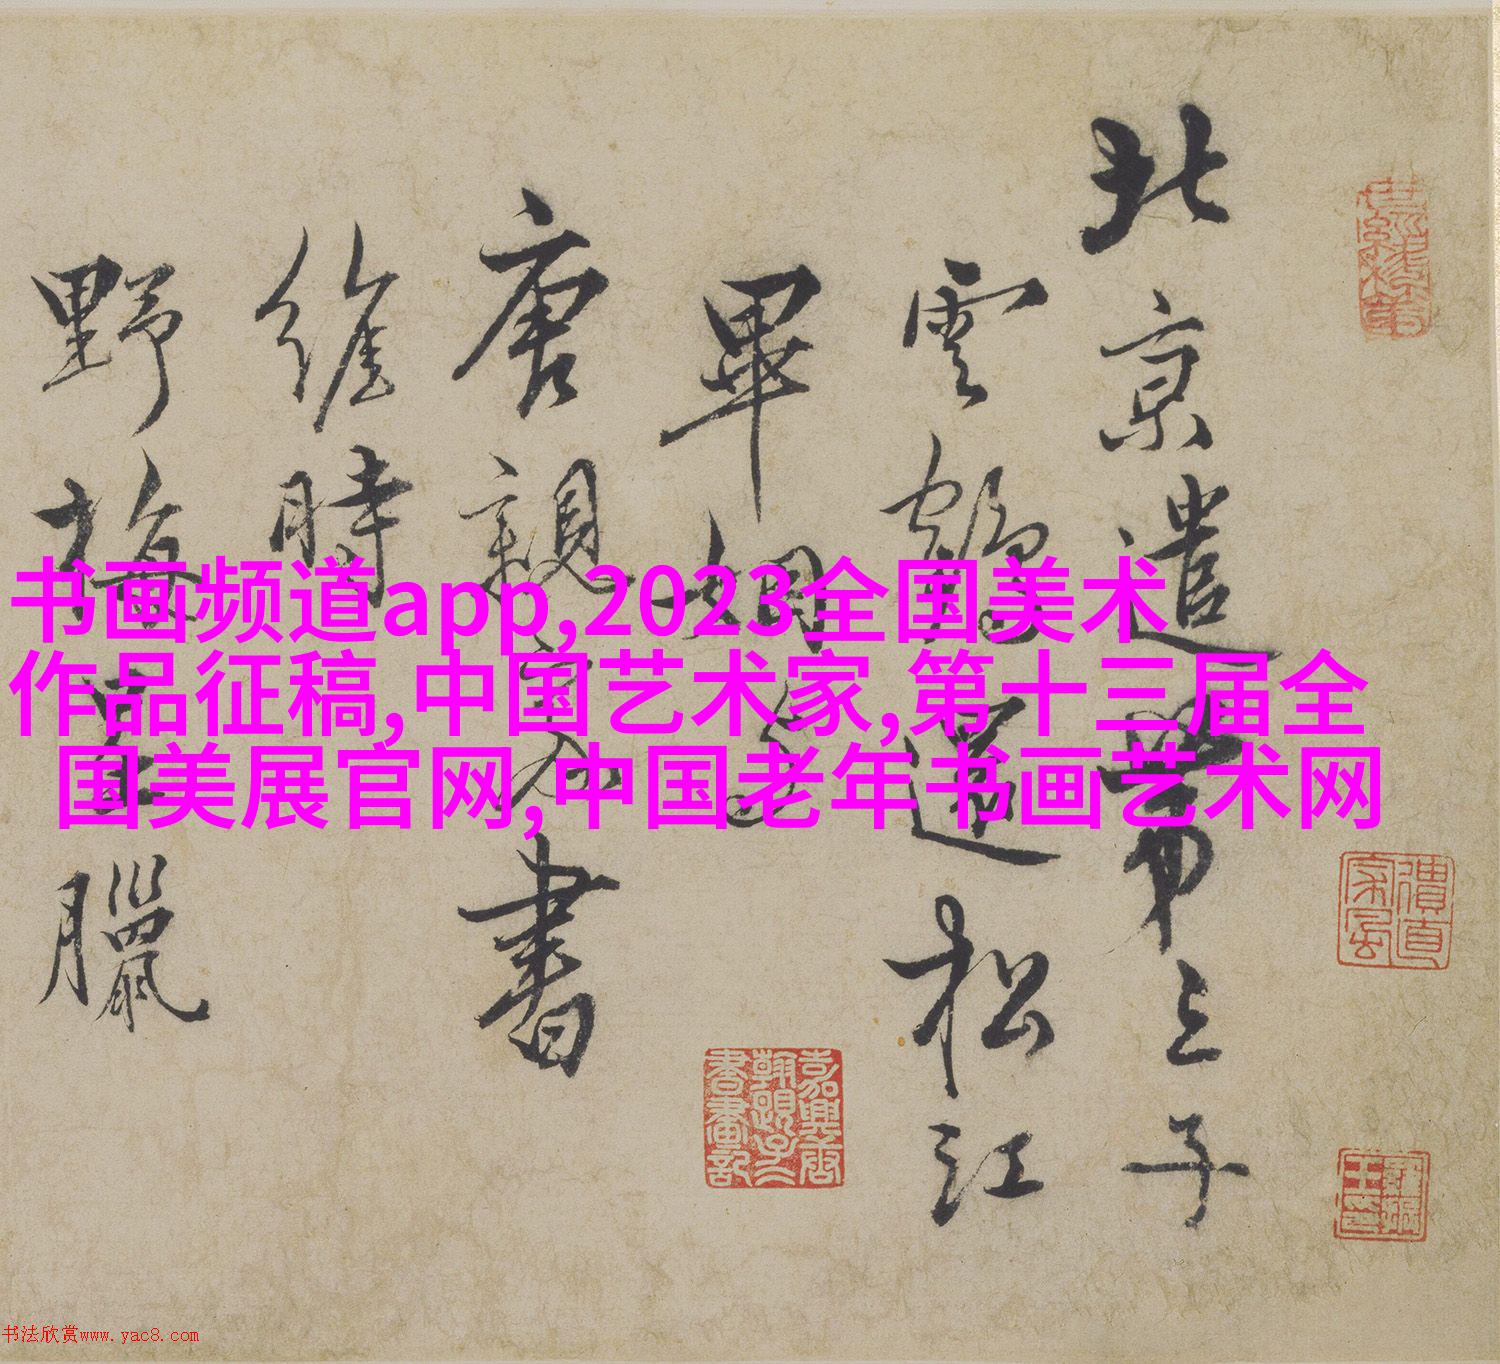 书画频道app,2023全国美术
作品征稿,中国艺术家,第十三届全
国美展官网,中国老年书画艺术网
北京遣第三子
雲鶴還松江
畢姻
唐親書
維時
野梅臘
书法欣赏www.yac8.com